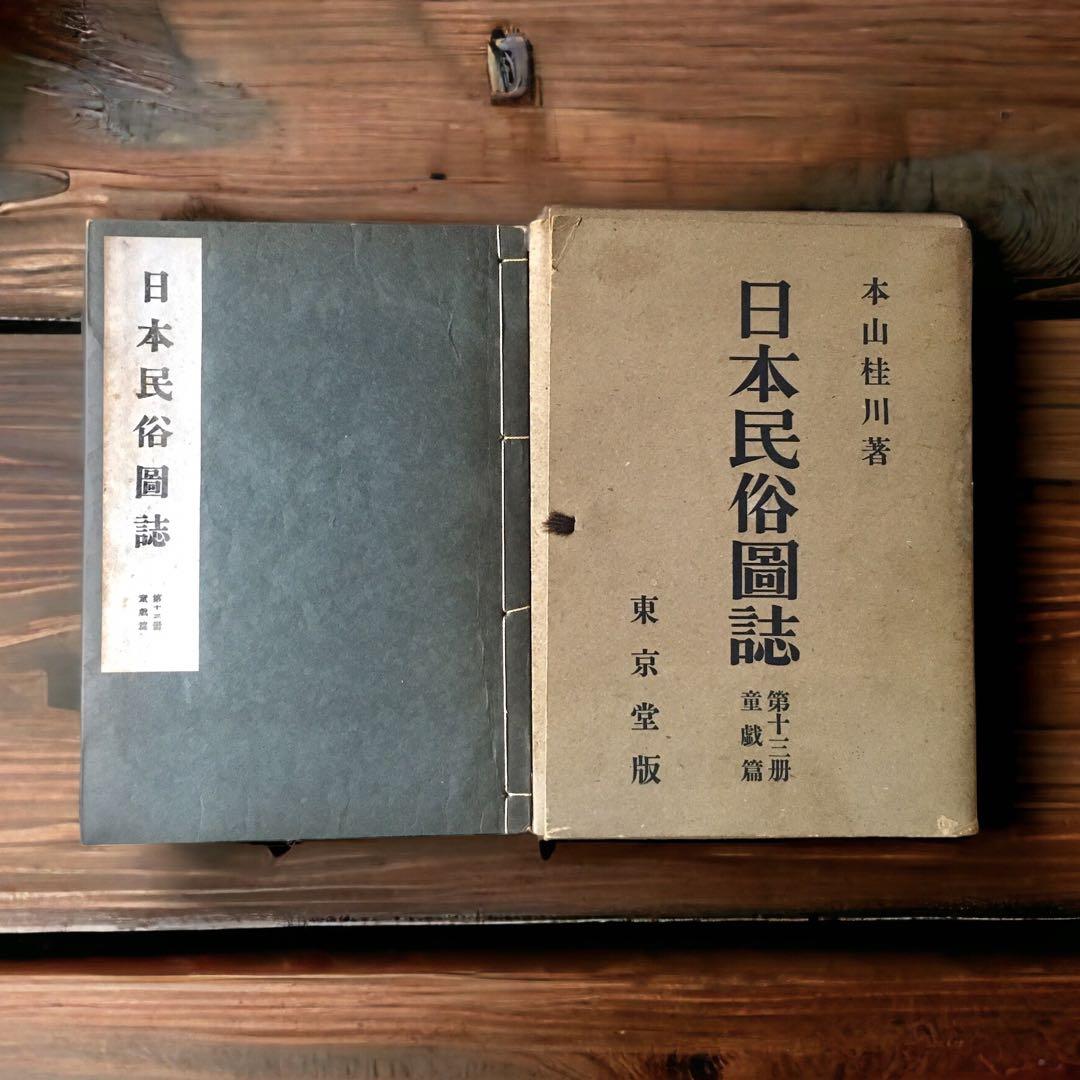 日本民俗圖誌
第十三冊
童戯篇
本山桂川著
日本民俗圖誌
第十三册
童戯篇
東京堂版